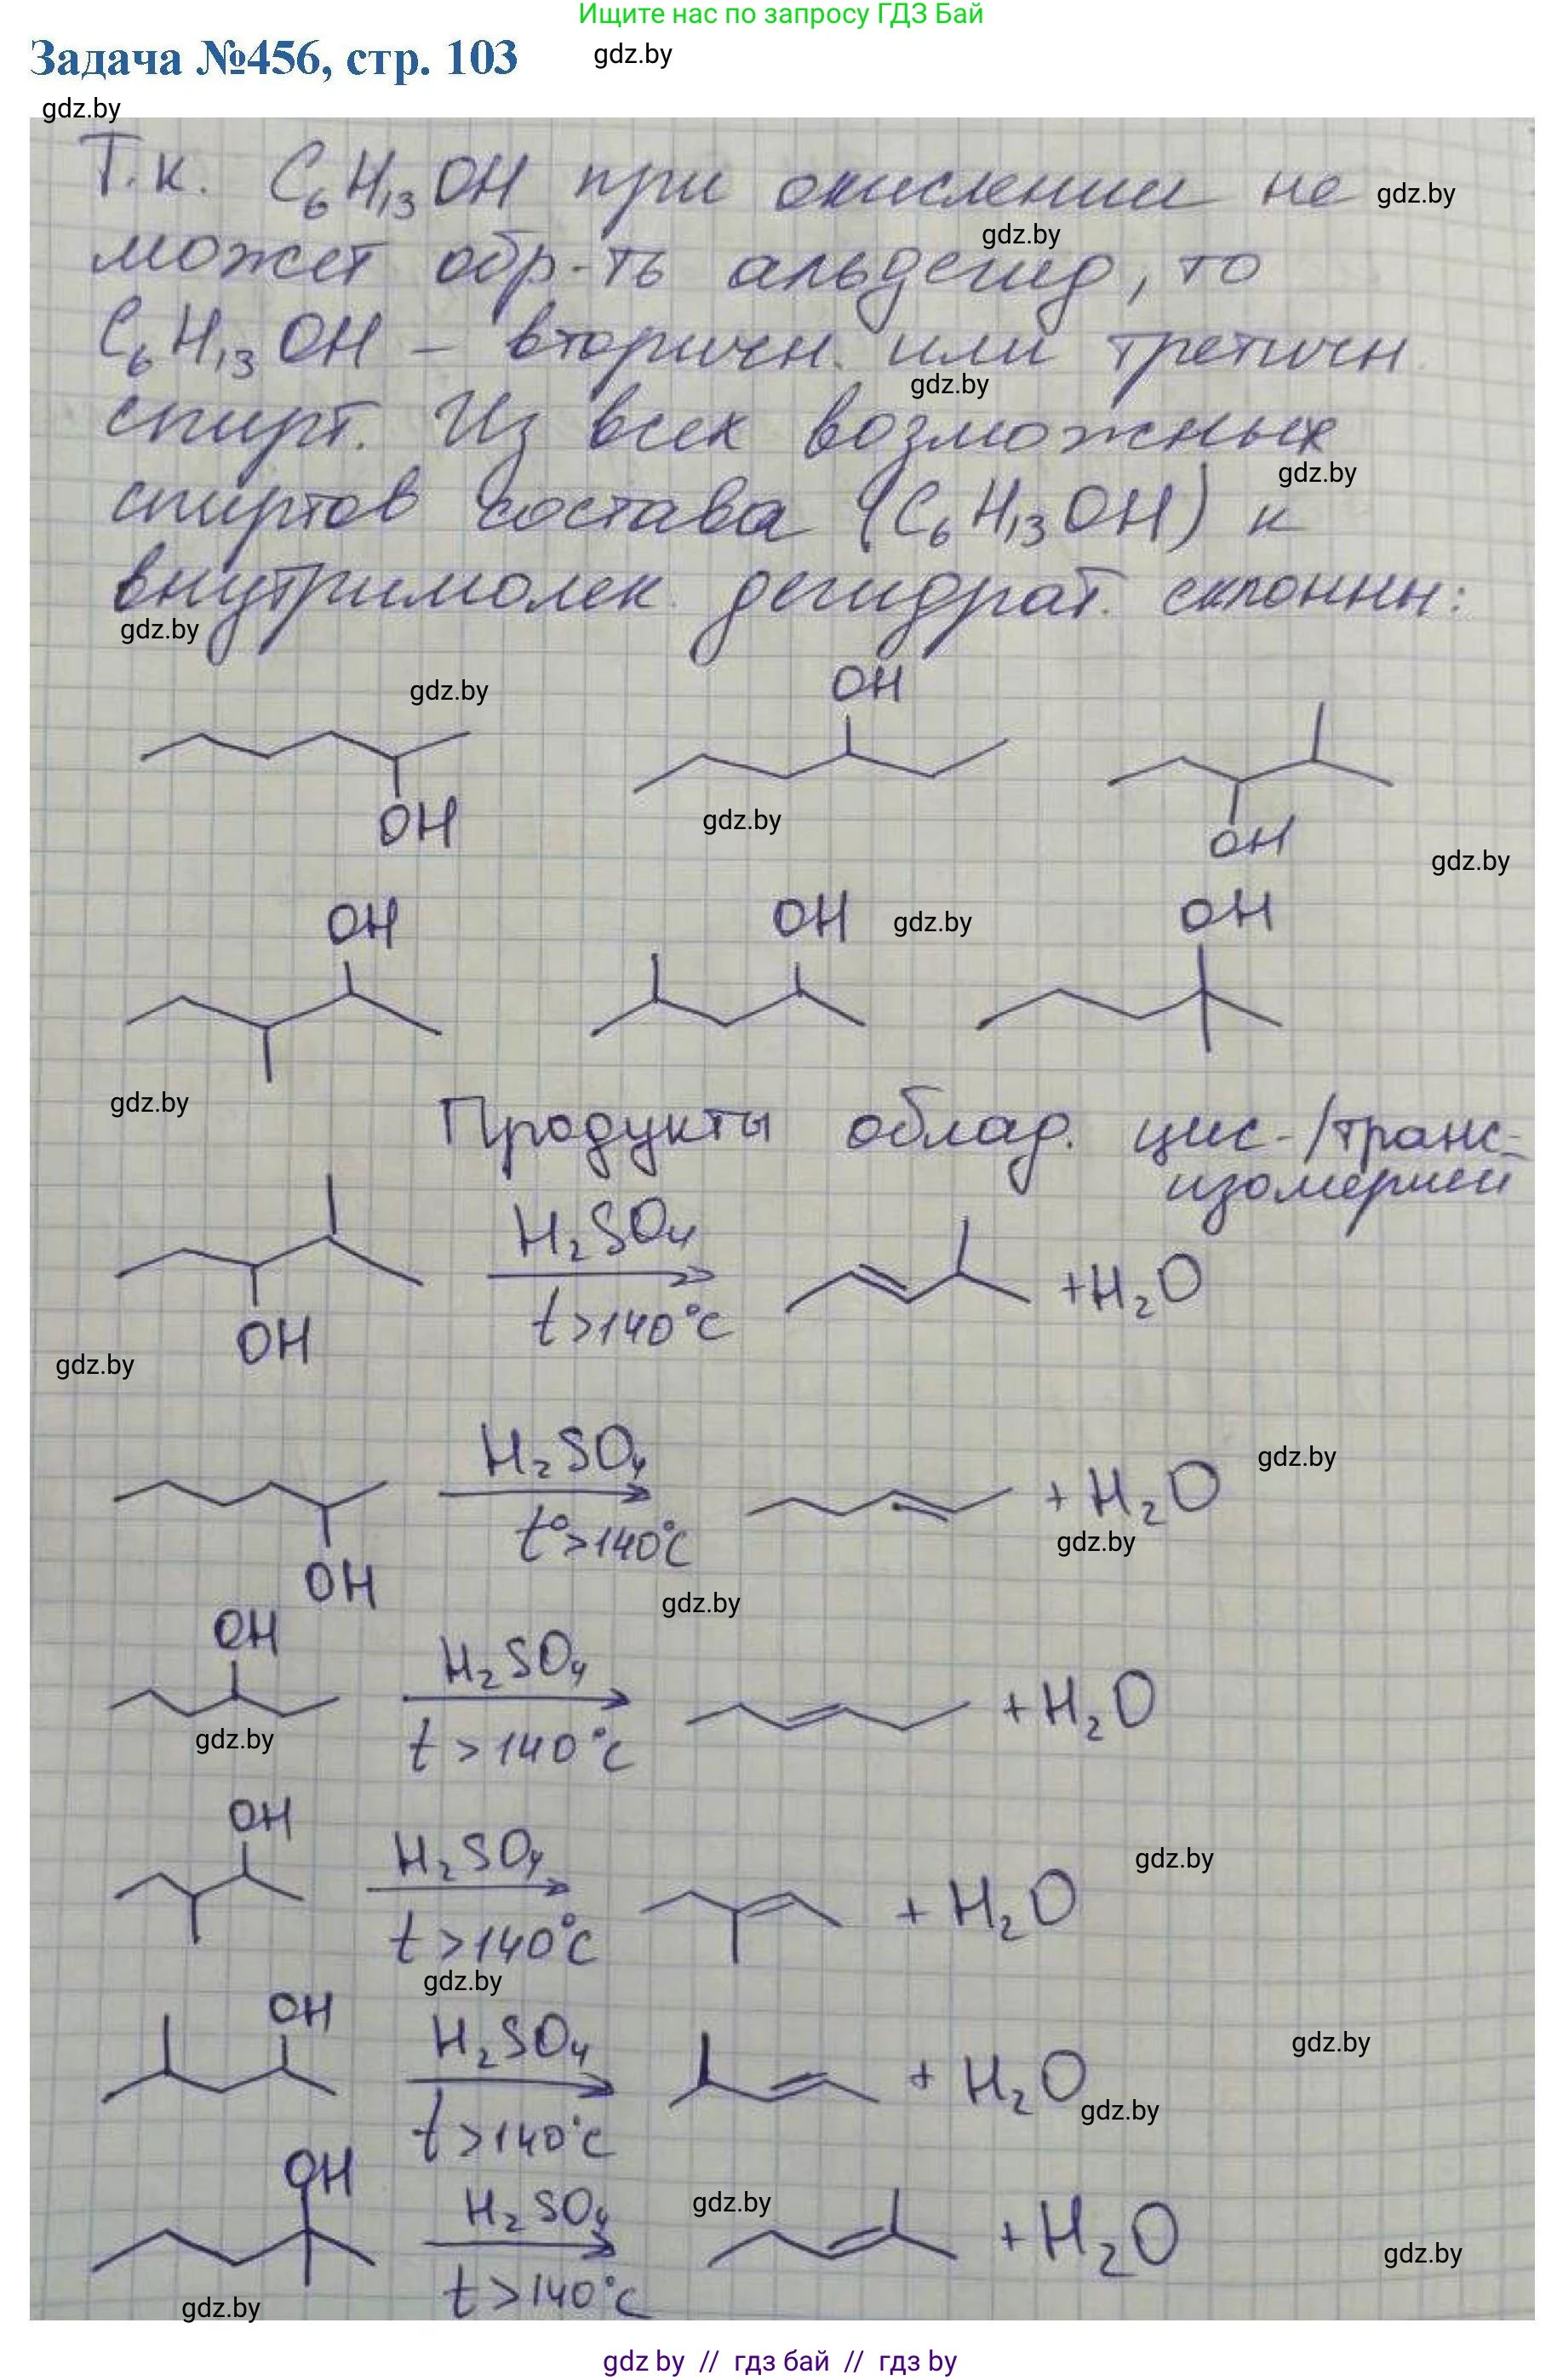 Ищите нас по запросу ГДЗ Бай
Задача №456, стр. 103
gdz.by
gdz.by
Т.к. C₆H₁₃OH при окислении не
gdz.by
gdz.by
может обр-ть альдегид, то
C₆H₁₃OH – вторичн. или третичн.
gdz.by
спирт. Из всех возможных
gdz.by
спиртов состава (C₆H₁₃OH) к
внутримолек. дегидрат. склонны:
gdz.by
gdz.by
OH
OH
gdz.by
OH
gdz.by
OH
OH
gdz.by
OH
gdz.by
Продукты облад. цис-/транс-
изомерией
H₂SO₄
t>140°C
+H₂O
OH
gdz.by
H₂SO₄
t°>140°C
+ H₂O
gdz.by
gdz.by
OH
gdz.by
OH
H₂SO₄
t >140°C
+H₂O
gdz.by
OH
H₂SO₄
t >140°C
+ H₂O
gdz.by
gdz.by
OH
H₂SO₄
t>140°C
+ H₂O
gdz.by
gdz.by
OH
H₂SO₄
t>140°C
gdz.by
+H₂O
gdz.by
gdz.by
gdz by // гдз бай // гдз by